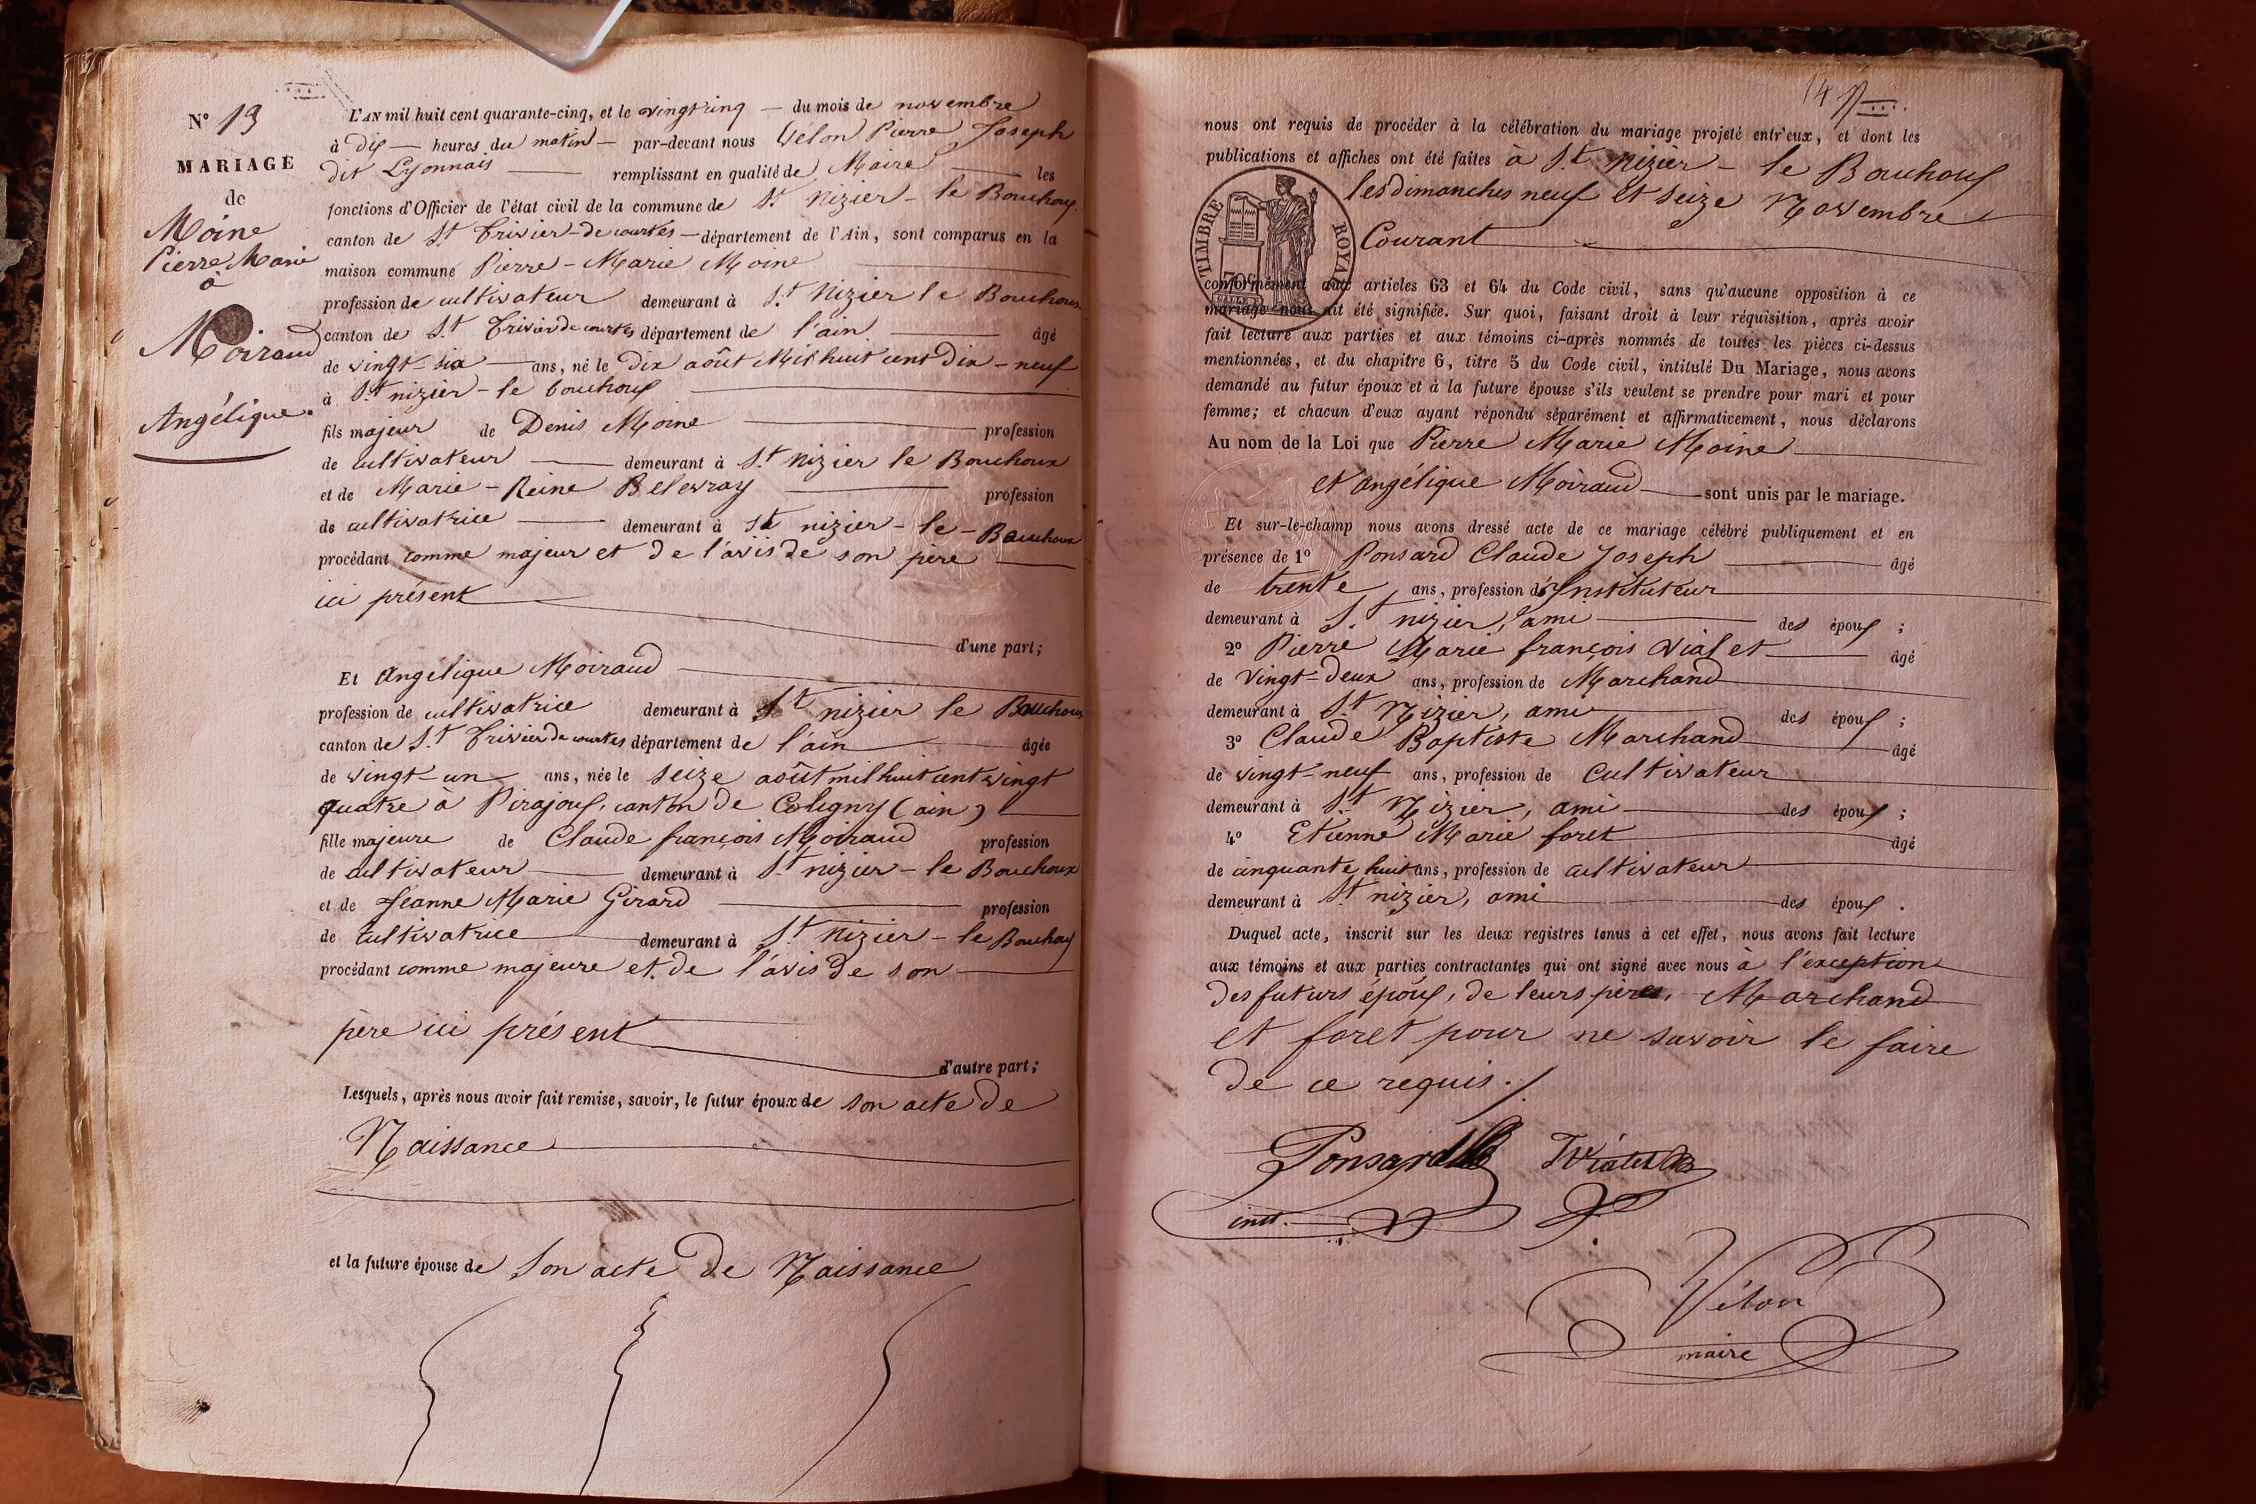 N° 13
MARIAGE
de
Moine
Pierre Marie
à
Moiraud
Angélique.
L'AN mil huit cent quarante-cinq, et le vingt cinq du mois de novembre
à dix heures du matin par-devant nous Velon Pierre Joseph
dit Lyonnais remplissant en qualité de Maire les
fonctions d'Officier de l'état civil de la commune de St. Nizier-le Bouchoux
canton de St. Trivier-de courtes département de l'Ain, sont comparus en la
maison commune Pierre-Marie Moine
profession de cultivateur demeurant à St. Nizier le Bouchoux
canton de St. Trivier de courtes département de l'ain âgé
de vingt-six ans, né le dix août Mil huit cent dix-neuf
à St. nizier-le bouchoux
fils majeur de Denis Moine profession
de cultivateur demeurant à St. nizier le Bouchoux
et de Marie-Reine Belevray profession
de cultivatrice demeurant à St nizier-le-Bouchoux
procédant comme majeur et de l'avis de son père
ici présent
d'une part;
Et Angélique Moiraud
profession de cultivatrice demeurant à St nizier le Bouchoux
canton de St. Trivier de courtes département de l'ain âgée
de vingt-un ans, née le seize août mil huit cent vingt
quatre à Pirajoux, canton de Coligny (ain)
fille majeure de Claude françois Moiraud profession
de cultivateur demeurant à St. nizier-le Bouchoux
et de Jeanne Marie Girard profession
de cultivatrice demeurant à St. Nizier-le Bouchoux
procédant comme majeure et de l'avis de son
père ici présent
d'autre part;
Lesquels, après nous avoir fait remise, savoir, le futur époux de son acte de
Naissance
et la future épouse de son acte de Naissance
14
nous ont requis de procéder à la célébration du mariage projeté entr'eux, et dont les
publications et affiches ont été faites à St. nizier-le Bouchoux
les dimanches neuf et seize Novembre
Courant
TIMBRE ROYAL
70c
conformément aux articles 63 et 64 du Code civil, sans qu'aucune opposition à ce
mariage nous ait été signifiée. Sur quoi, faisant droit à leur réquisition, après avoir
fait lecture aux parties et aux témoins ci-après nommés de toutes les pièces ci-dessus
mentionnées, et du chapitre 6, titre 5 du Code civil, intitulé Du Mariage, nous avons
demandé au futur époux et à la future épouse s'ils veulent se prendre pour mari et pour
femme; et chacun d'eux ayant répondu séparément et affirmativement, nous déclarons
Au nom de la Loi que Pierre Marie Moine
et Angélique Moiraud sont unis par le mariage.
Et sur-le-champ nous avons dressé acte de ce mariage célébré publiquement et en
présence de 1° Ponsard Claude Joseph âgé
de trente ans, profession d'Instituteur
demeurant à St. nizier, ami des époux ;
2° Pierre Marie françois Vialet âgé
de vingt-deux ans, profession de Marchand
demeurant à St. Nizier, ami des époux ;
3° Claude Baptiste Marchand âgé
de vingt-neuf ans, profession de Cultivateur
demeurant à St. Nizier, ami des époux ;
4° Etienne Marie foret âgé
de cinquante huit ans, profession de cultivateur
demeurant à St nizier, ami des époux .
Duquel acte, inscrit sur les deux registres tenus à cet effet, nous avons fait lecture
aux témoins et aux parties contractantes qui ont signé avec nous à l'exception
des futurs époux, de leurs pères, Marchand
et foret pour ne savoir le faire
de ce requis ./.
Ponsard
inst.
Vialet
Vélon
maire